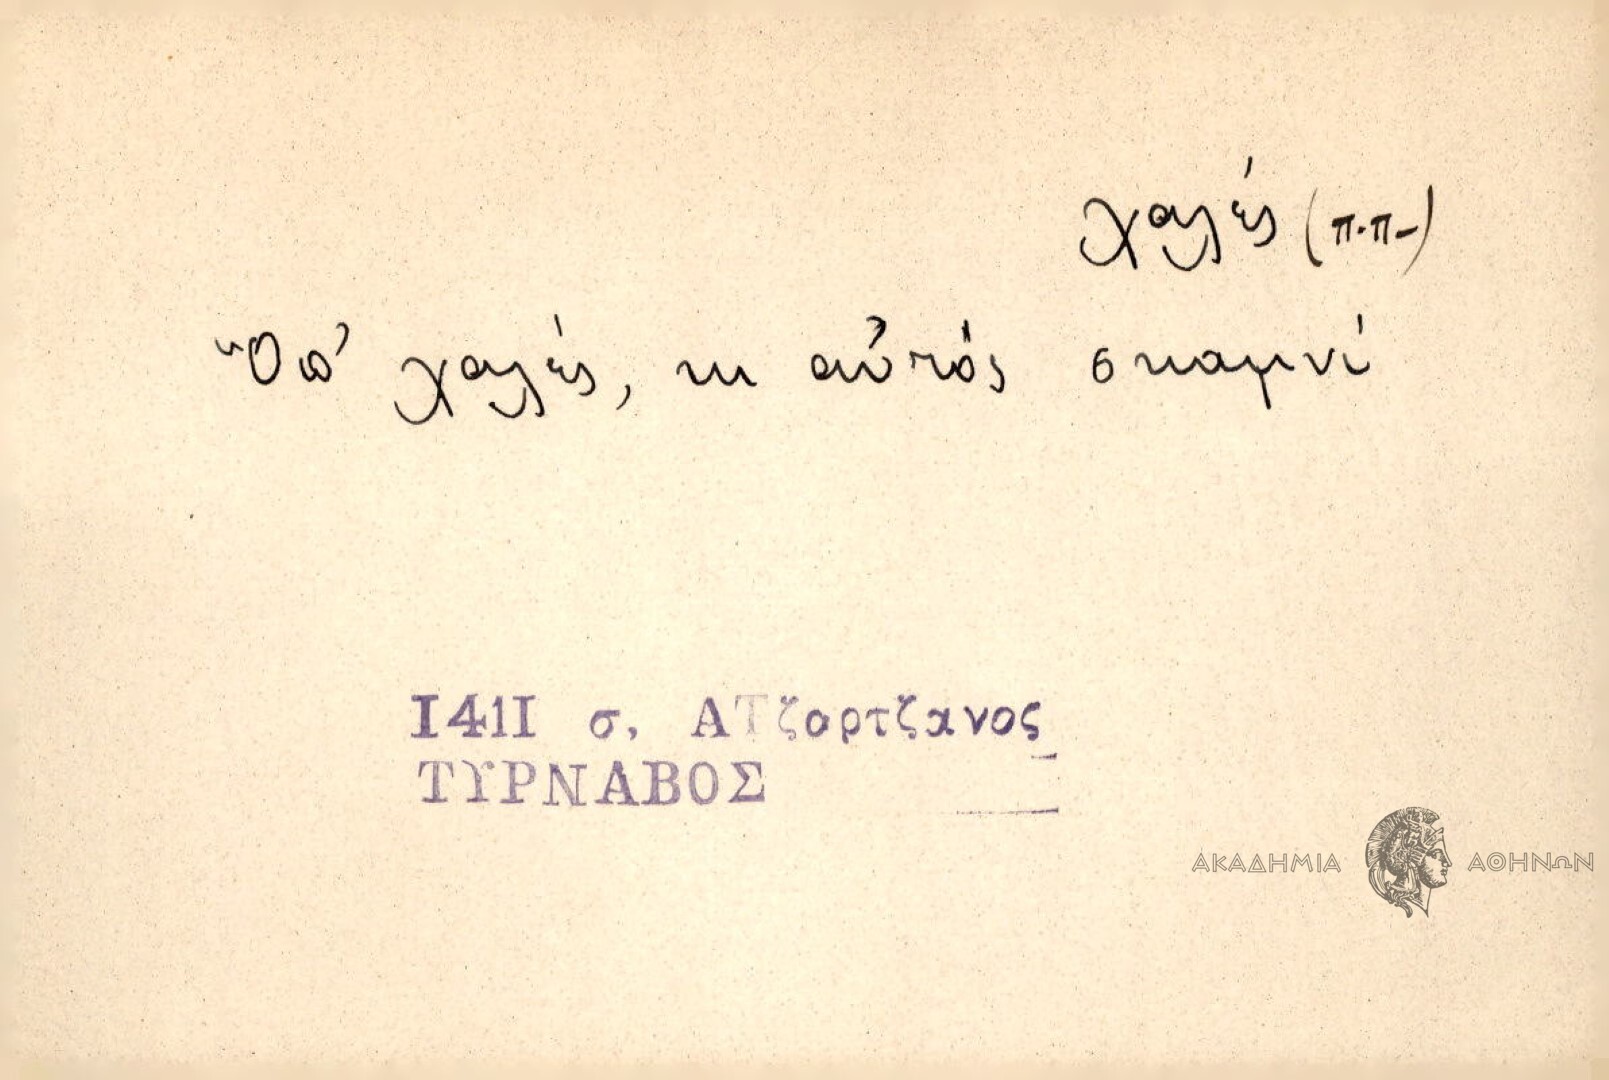 χαλές (π.π-)
Ὅπ' χαλές, κι αὐτός σκαμνί
1411 σ. ΑΤζαρτζανος
ΤΥΡΝΑΒΟΣ
ΑΚΑΔΗΜΙΑ ΑΘΗΝΩΝ